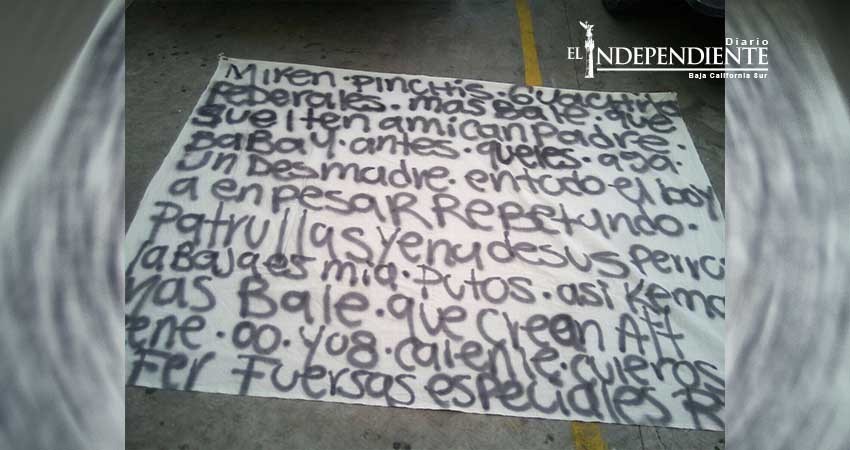 Diario
EL INDEPENDIENTE
Baja California Sur
Miren. pinchis. Guachiris
Federales. mas Bale. que
suelten amican padre.
BaBay. antes. queles. aga.
un Desmadre. entodo el
a en pesar RREBetundo.
Patrullas yenu desus perra
laBaja es mia. putos. asi Kem
mas Bale. que creen A
ene. 00. y08. calente. culeros
Fer Fuersas especiales R